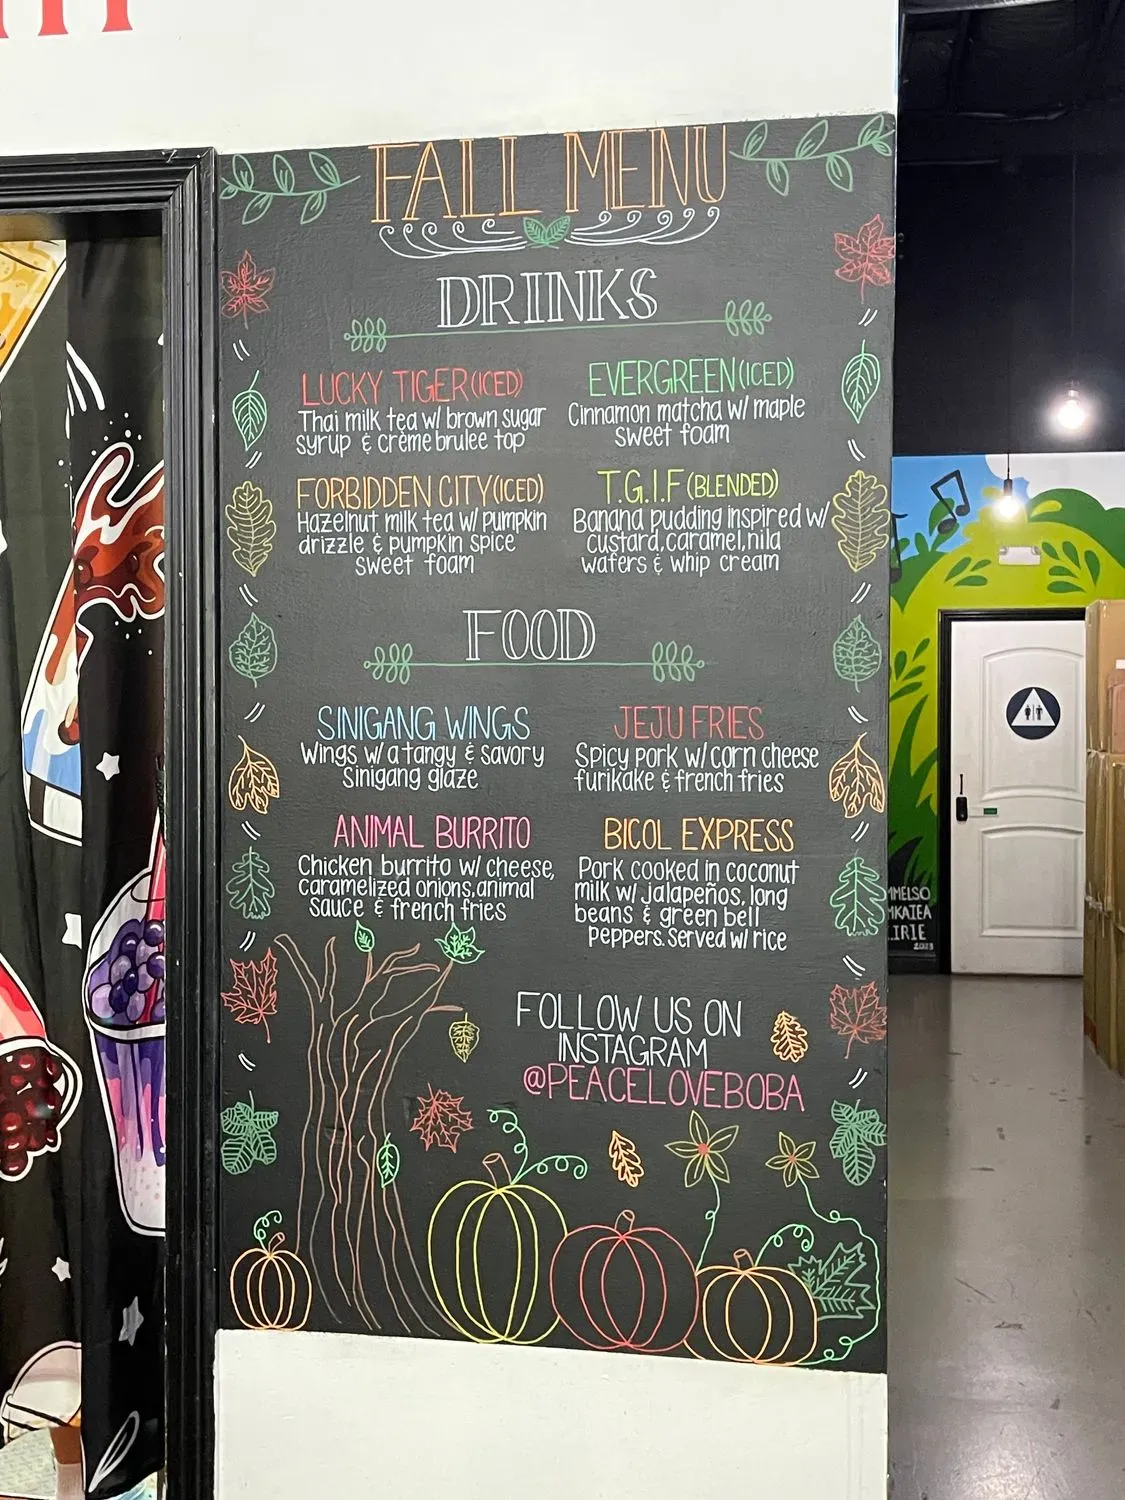 FALL MENU
DRINKS
LUCKY TIGER (ICED)
Thai milk tea w/ brown sugar
syrup & crème brulee top
EVERGREEN (ICED)
Cinnamon matcha w/ maple
sweet foam
FORBIDDEN CITY (ICED)
Hazelnut milk tea w/ pumpkin
drizzle & pumpkin spice
sweet foam
T.G.I.F (BLENDED)
Banana pudding inspired w/
custard, caramel, nila
wafers & whip cream
FOOD
SINIGANG WINGS
Wings w/ a tangy & savory
Sinigang glaze
JEJU FRIES
Spicy pork w/ corn cheese
furikake & french fries
ANIMAL BURRITO
Chicken burrito w/ cheese,
caramelized onions, animal
sauce & french fries
BICOL EXPRESS
Pork cooked in coconut
milk w/ jalapeños, long
beans & green bell
peppers. Served w/ rice
FOLLOW US ON
INSTAGRAM
@PEACELOVEBOBA
2023